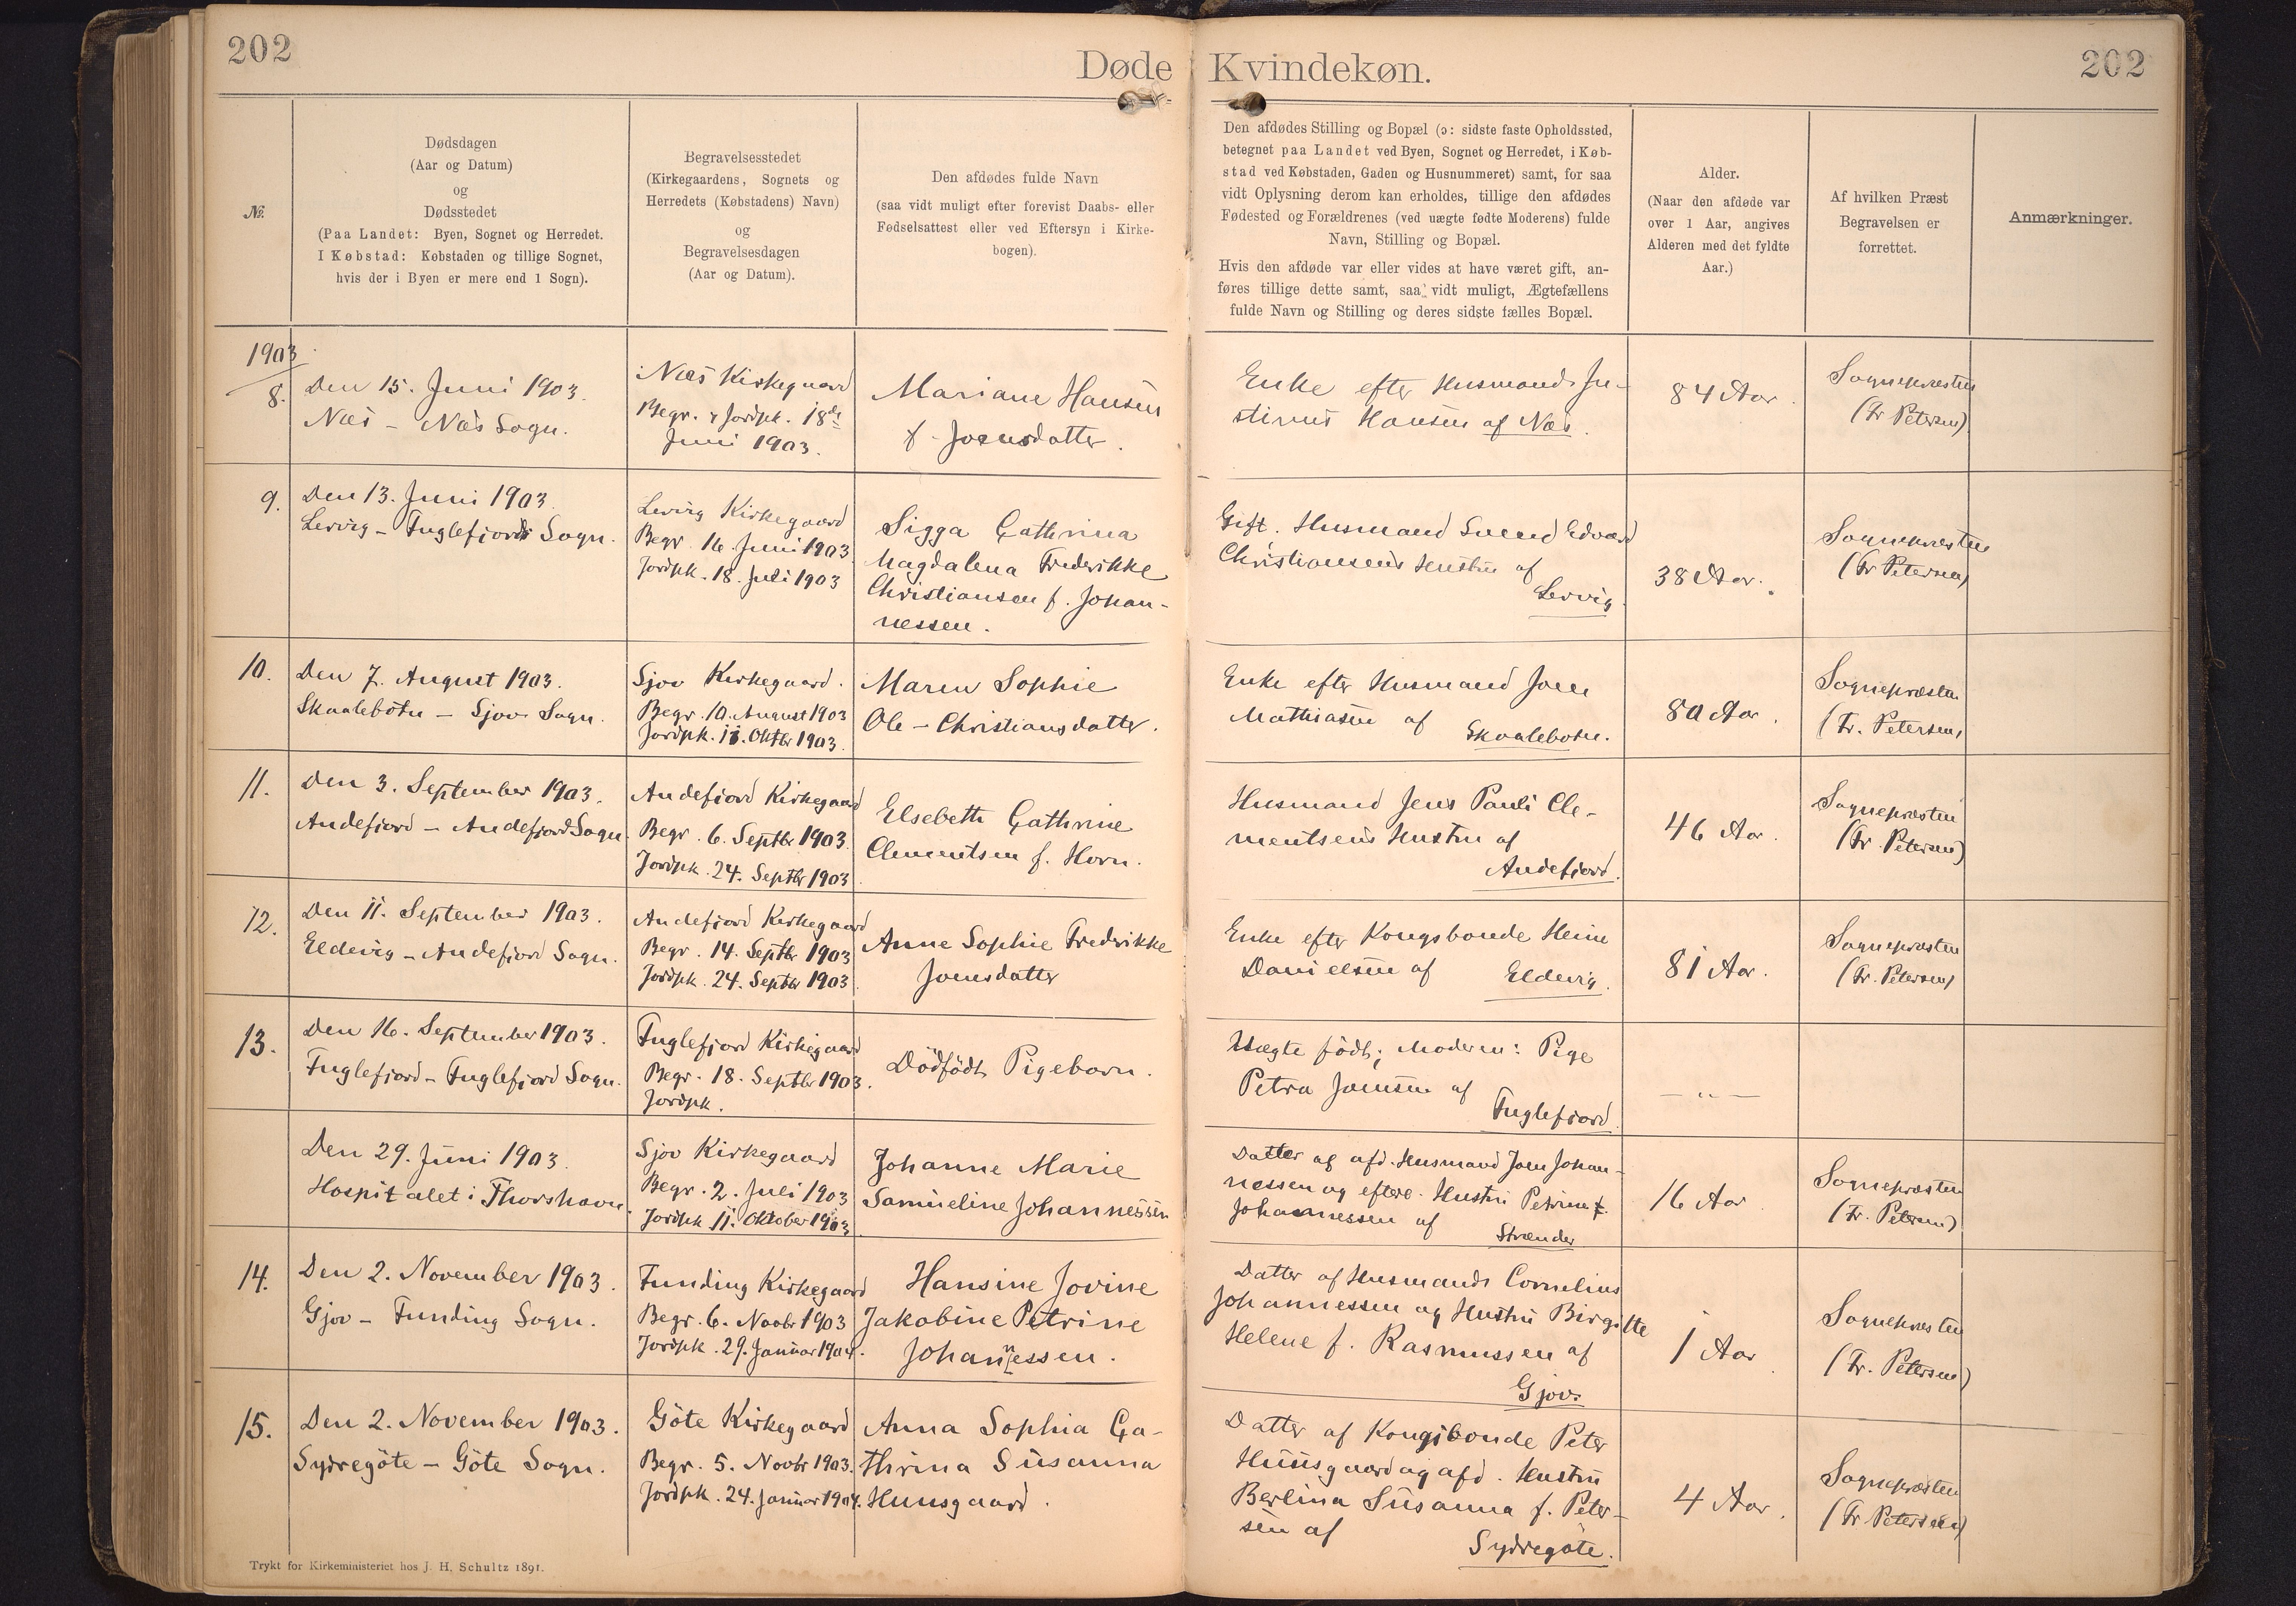 202
Døde Kvindekøn.
202
№
Dødsdagen
(Aar og Datum)
og
Dødsstedet
(Paa Landet: Byen, Sognet og Herredet.
I Købstad: Købstaden og tillige Sognet,
hvis der i Byen er mere end 1 Sogn).
Begravelsesstedet
(Kirkegaardens, Sognets og
Herredets (Købstadens) Navn)
og
Begravelsesdagen
(Aar og Datum).
Den afdødes fulde Navn
(saa vidt muligt efter forevist Daabs- eller
Fødselsattest eller ved Eftersyn i Kirke-
bogen).
Den afdødes Stilling og Bopæl (ɔ: sidste faste Opholdssted,
betegnet paa Landet ved Byen, Sognet og Herredet, i Køb-
stad ved Købstaden, Gaden og Husnummeret) samt, for saa
vidt Oplysning derom kan erholdes, tillige den afdødes
Fødested og Forældrenes (ved uægte fødte Moderens) fulde
Navn, Stilling og Bopæl.
Hvis den afdøde var eller vides at have været gift, an-
føres tillige dette samt, saa vidt muligt, Ægtefællens
fulde Navn og Stilling og deres sidste fælles Bopæl.
Alder.
(Naar den afdøde var
over 1 Aar, angives
Alderen med det fyldte
Aar.)
Af hvilken Præst
Begravelsen er
forrettet.
Anmærkninger.
1903
8.
Den 15. Juni 1903.
Næs – Næs Sogn.
Næs Kirkegaard
Begr. & Jordpk. 18de
Juni 1903.
Mariane Hansen
f. Joensdatter.
Enke efter Husmand Ju-
stinus Hansen af Næs.
84 Aar.
Sognepræsten
(Fr Petersen)
9.
Den 13. Juni 1903.
Lervig – Fuglefjords Sogn.
Lervig Kirkegaard
Begr. 16. Juni 1903
Jordpk. 18. Juli 1903
Sigga Cathrina
Magdalena Frederikke
Christiansen f. Johan-
nessen.
Gift. Husmand Svend Edvard
Christiansens Hustru af
Lervig.
38 Aar.
Sognepræsten
(Fr Petersen)
10.
Den 7. August 1903.
Skaalebotn – Sjov Sogn.
Sjov Kirkegaard.
Begr. 10. August 1903
Jordpk. 11. Oktbr 1903.
Maren Sophie
Ole-Christiansdatter.
Enke efter Husmand Joen
Mathiasen af Skaalebotn.
80 Aar.
Sognepræsten
(Fr. Petersen)
11.
Den 3. September 1903.
Andefjord – Andefjord Sogn.
Andefjord Kirkegaard
Begr. 6. Septbr 1903.
Jordpk. 24. Septbr 1903
Elsebeth Cathrine
Clementsen f. Horn.
Husmand Jens Pauli Cle-
mentsens Hustru af
Andefjord.
46 Aar.
Sognepræsten
(Fr. Petersen)
12.
Den 11. September 1903.
Eldevig – Andefjord Sogn.
Andefjord Kirkegaard
Begr. 14. Septbr 1903
Jordpk. 24. Septbr 1903
Anne Sophie Frederikke
Jonsdatter
Enke efter Kongsbonde Heine
Danielsen af Eldevig.
81 Aar.
Sognepræsten
(Fr. Petersen)
13.
Den 16. September 1903.
Fuglefjord – Fuglefjord Sogn.
Fuglefjord Kirkegaard
Begr. 18. Septbr 1903.
Jordpk.
Dödfödt Pigebarn.
Uægte födt; Moderen: Pige
Petra Joensen af
Fuglefjord.
— „ —
Den 29. Juni 1903.
Hospitalet i Thorshavn.
Sjov Kirkegaard
Begr. 2. Juli 1903
Jordpk 11. Oktober 1903.
Johanne Marie
Samueline Johannessen
Datter af afd. Husmand Joen Johan-
nessen og efterl. Hustru Petrine f.
Johannessen af Strænder
16 Aar.
Sognepræsten
(Fr. Petersen)
14.
Den 2. November 1903.
Gjov – Funding Sogn.
Funding Kirkegaard
Begr. 6. Novbr 1903
Jordpk. 29. Januar 1904.
Hansine Jovine
Jakobine Petrine
Johannessen.
Datter af Husmand Cornelius
Johannessen og Hustru Birgitte
Helene f. Rasmussen af
Gjov.
1 Aar
Sognepræsten
(Fr. Petersen)
15.
Den 2. November 1903.
Sydregöte – Göte Sogn.
Göte Kirkegaard
Begr. 5. Novbr 1903.
Jordpk. 24. Januar 1904.
Anna Sophia Ca-
thrina Susanna
Huusgaard.
Datter af Kongsbonde Peter
Huusgaard og afd. Hustru
Berlina Susanna f. Peter-
sen af
Sydregöte.
4 Aar.
Sognepræsten
(Fr Petersen)
Trykt for Kirkeministeriet hos J. H. Schultz 1891.